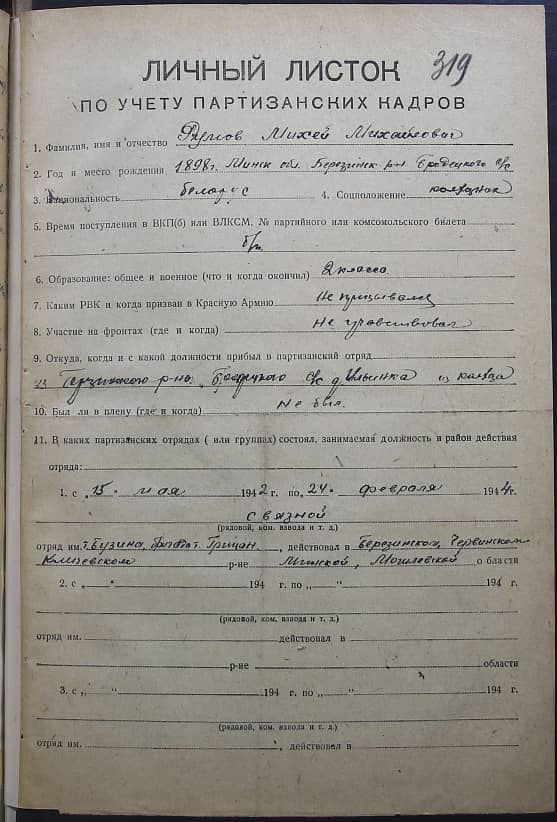 ЛИЧНЫЙ ЛИСТОК 319
ПО УЧЕТУ ПАРТИЗАНСКИХ КАДРОВ
1. Фамилия, имя и отчество Михей Михайлович
2. Год и место рождения 1898 г. Минск обл. Березинск р-н с/с
3. Национальность беларус 4. Соцположение колхозник
5. Время поступления в ВКП(б) или ВЛКСМ, № партийного или комсомольского билета
б/п
6. Образование: общее и военное (что и когда окончил) 2 класса
7. Каким РВК и когда призван в Красную Армию Не призывался
8. Участие на фронтах (где и когда) Не участвовал
9. Откуда, когда и с какой должности прибыл в партизанский отряд
из р-на с/с д. Ильинка из колхоза
10. Был ли в плену (где и когда) Не был.
11. В каких партизанских отрядах ( или группах) состоял, занимаемая должность и район действия
отряда:
1. с „15" мая 1942 г. по „24" февраля 1944 г.
связной
(рядовой, ком. взвода и т. д.)
отряд им. т. Бузина, , действовал в Березинском, Червинском
Кличевском р-не Минской, Могилевской области
2. с „ " 194 г. по „ " 194 г.
(рядовой, ком. взвода и т. д.)
отряд им. действовал в
р-не области
3. с „ " 194 г. по „ " 194 г.
(рядовой, ком. взвода и т. д.)
отряд им. , действовал в